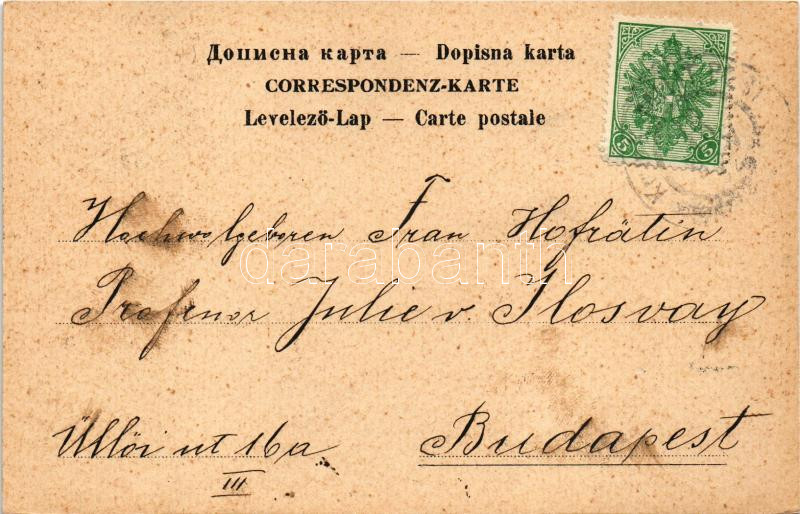 Дописна карта — Dopisna karta
CORRESPONDENZ-KARTE
Levelező-Lap — Carte postale
5 5
Hochwolgeboren Frau Hofrätin
darabanth
Professor Julie v. Ilosvay
Üllői ut 16a
III
Budapest